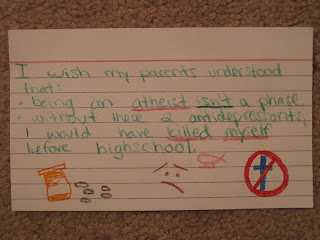 I wish my parents understood
that:
• being an atheist isn't a phase.
• without these 2 antidepressants,
I would have killed myself
before highschool.